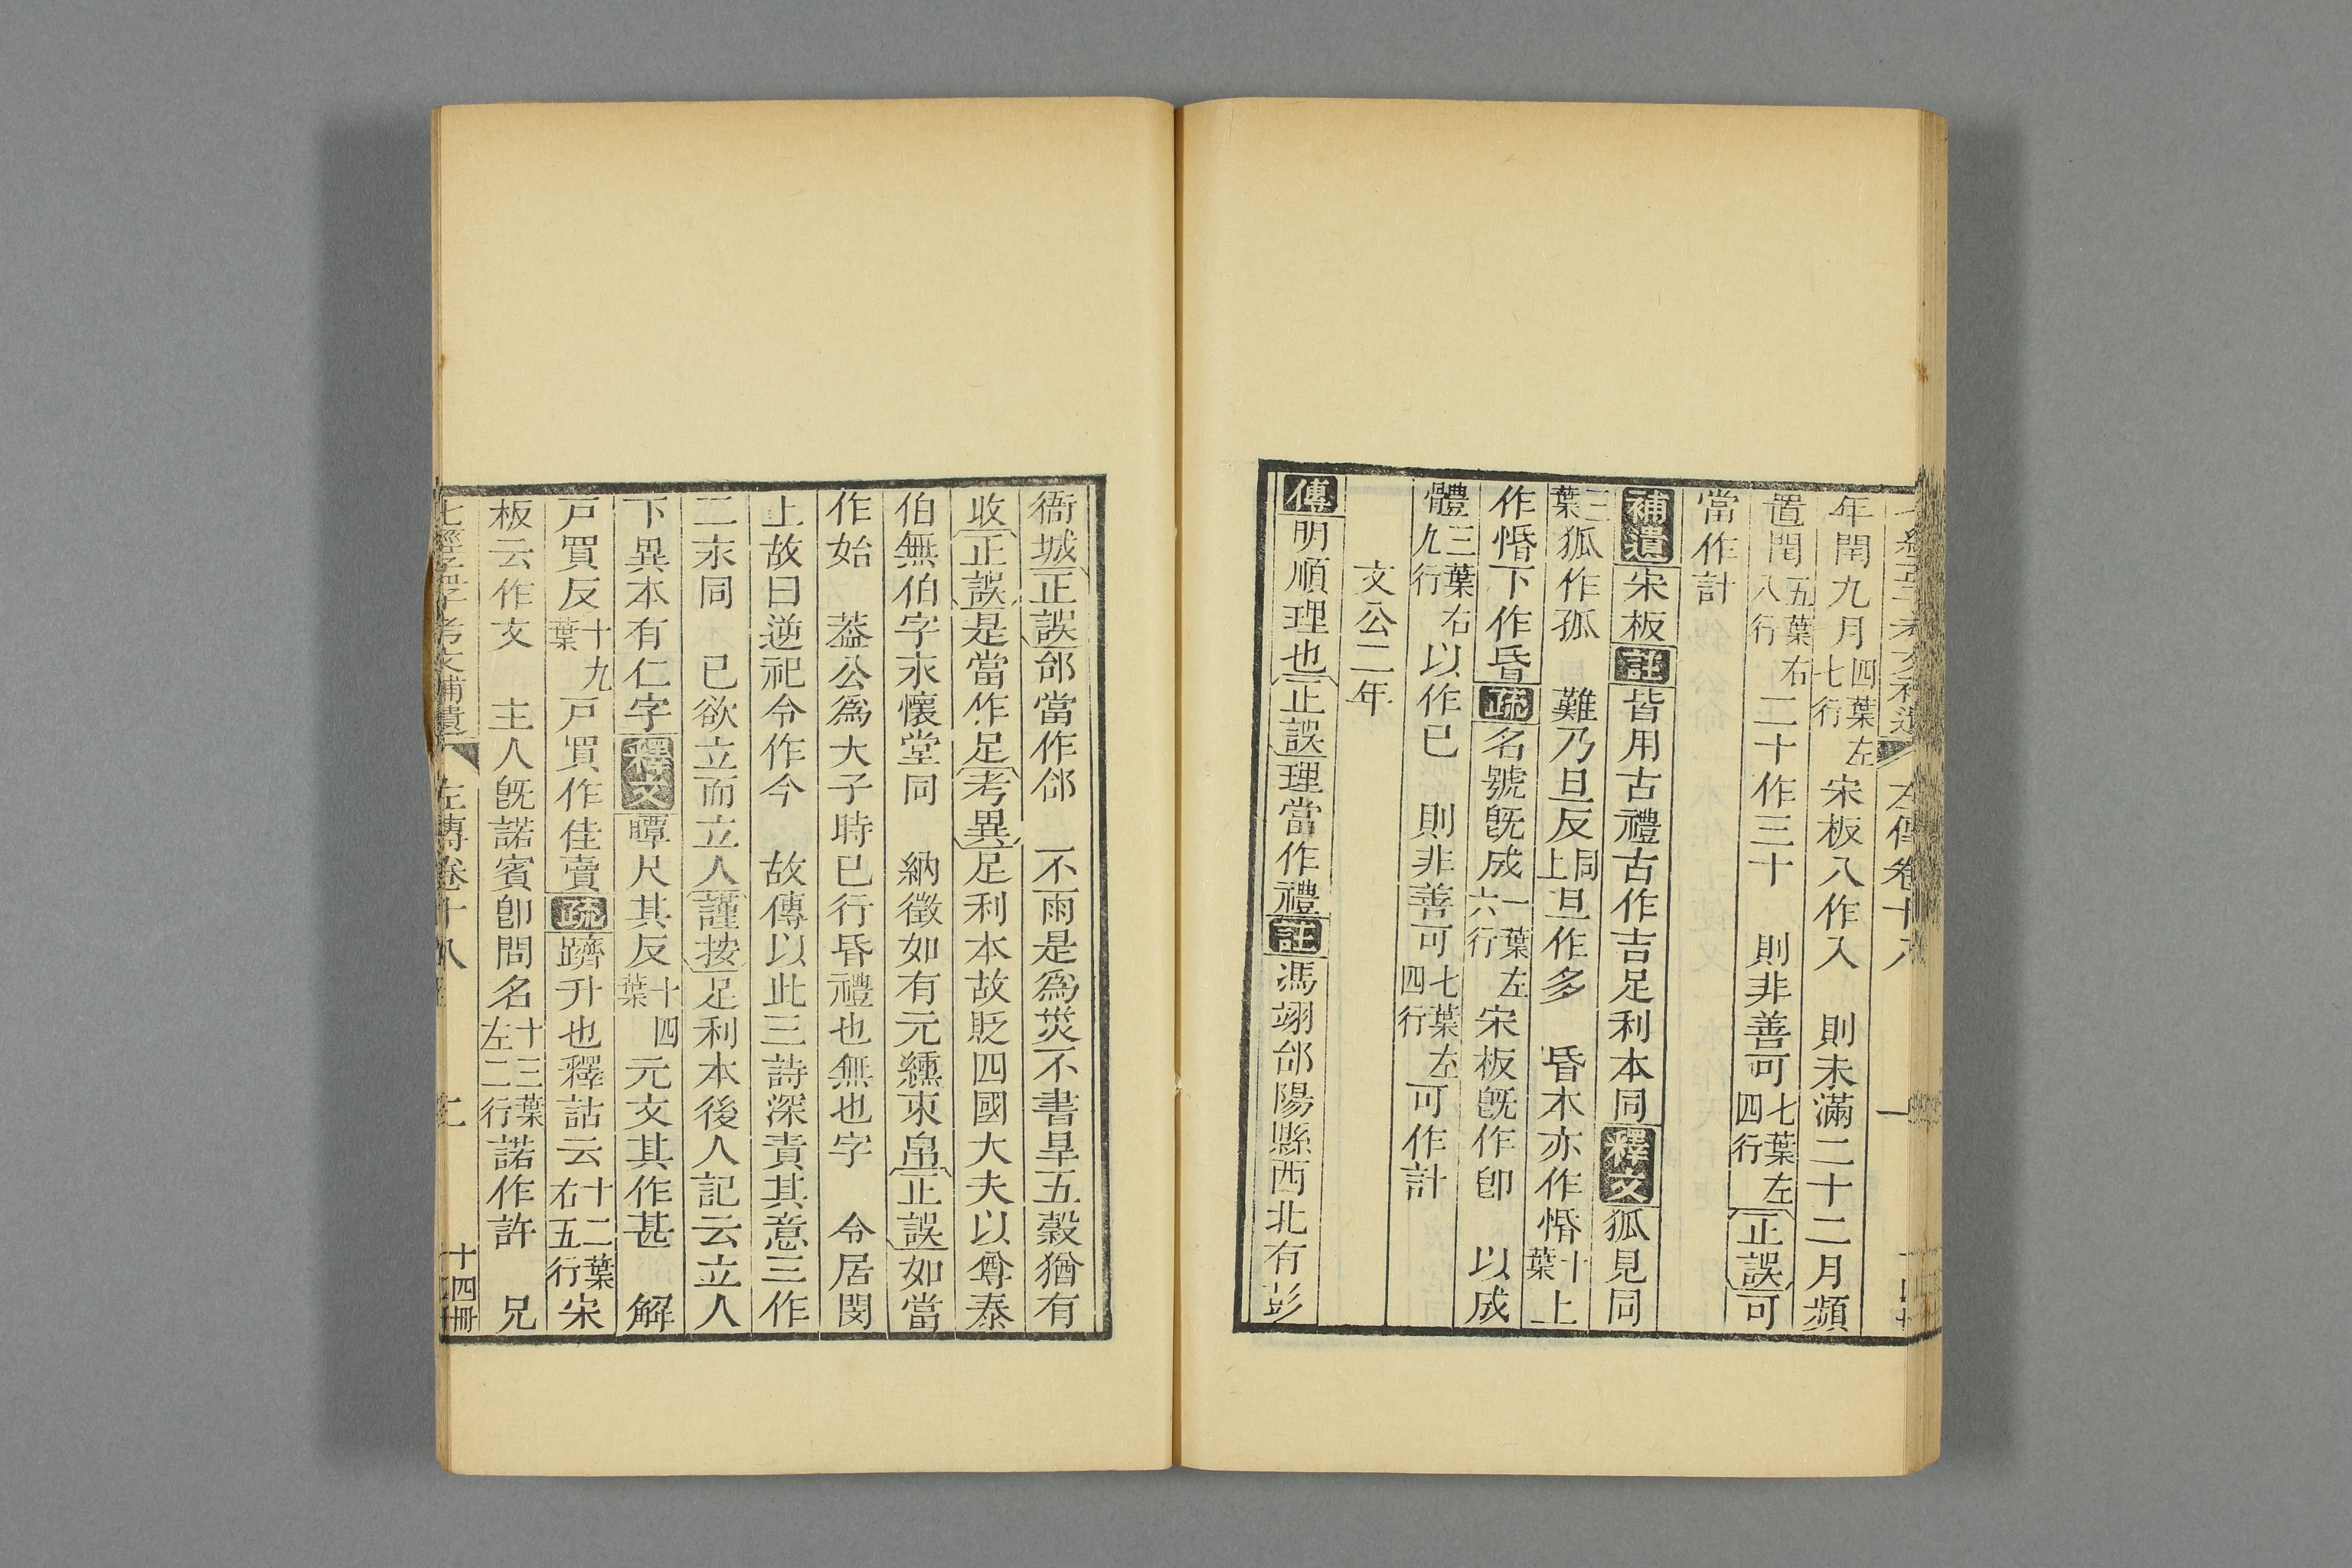 年閏九月四葉左七行宋板八作入　則未滿二十二月頻
置閏五葉右八行二十作三十　則非善可七葉左四行正誤可
當作計
補遺宋板註皆用古禮古作吉足利本同釋文狐見同
三葉狐作孤　難乃旦反同上旦作多　昏本亦作惛十葉上
作惛下作昏疏名號旣成一葉左六行宋板旣作卽　以成
體三葉右九行以作已　則非善可七葉左四行可作計
文公二年
傳明順理也正誤理當作禮註馮翊郃陽縣西北有彭
衙城正誤郃當作郃　不雨是爲災不書旱五穀猶有
收正誤是當作足考異足利本故貶四國大夫以尊秦
伯無伯字永懷堂同　納徵如有元纁束帛正誤如當
作始　葢公爲大子時已行昏禮也無也字　令居閔
上故曰逆祀令作今　故傳以此三詩深責其意三作
二永同　已欲立而立人謹按足利本後人記云立人
下異本有仁字釋文瞫尺其反十四葉元文其作甚　解
戸買反十九葉戸買作佳賣疏躋升也釋詁云十二葉右五行宋
板云作文　主人旣諾賓卽問名十三葉左二行諾作許　兄
七經孟子考文補遺　左傳卷十八　二　十四冊